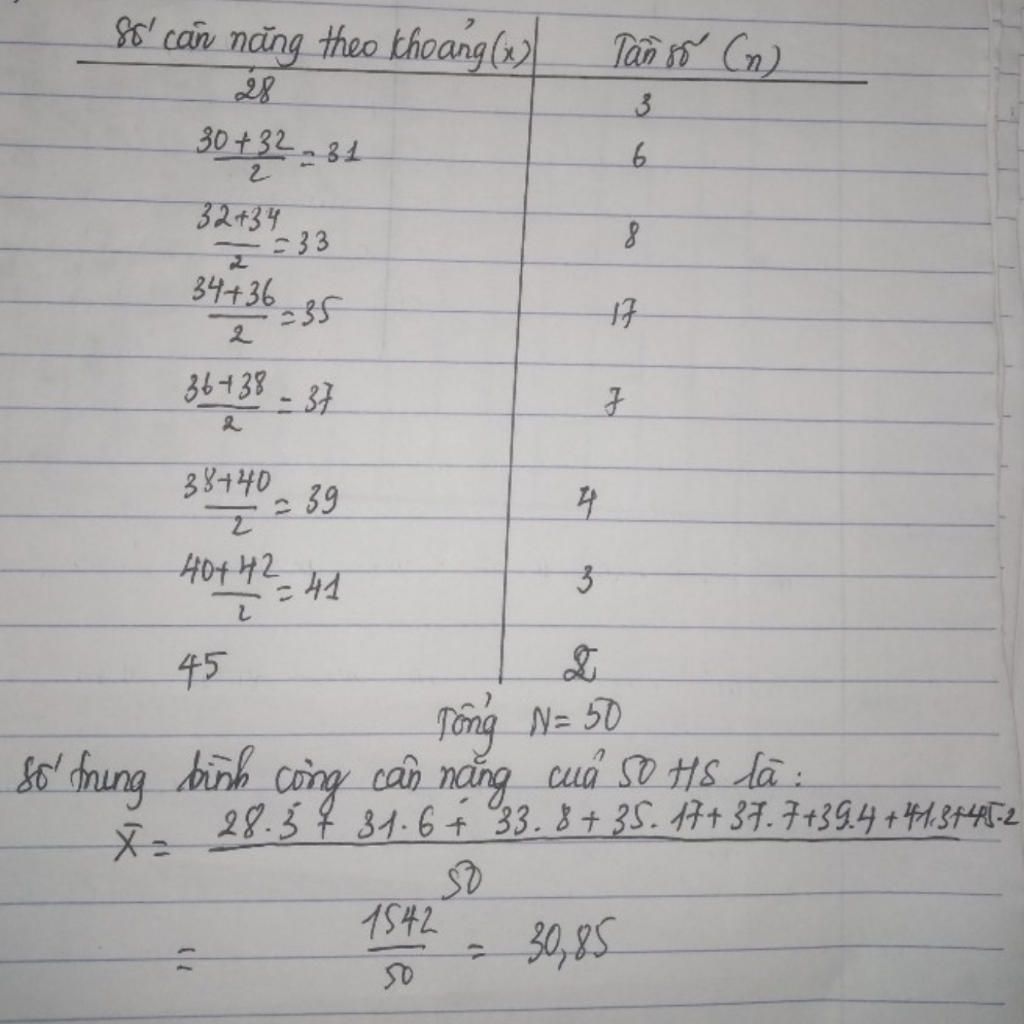 Số cân nặng theo khoảng (x) Tần số (n)
28 3
30+32/2 = 31 6
32+34/2 = 33 8
34+36/2 = 35 17
36+38/2 = 37 7
38+40/2 = 39 4
40+42/2 = 41 3
45 2
Tổng N = 50
Số trung bình cộng cân nặng cuả 50 HS là:
X̄ = 28.3 + 31.6 + 33.8 + 35.17 + 37.7 + 39.4 + 41.3 + 45.2 / 50
= 1542/50 = 30,85